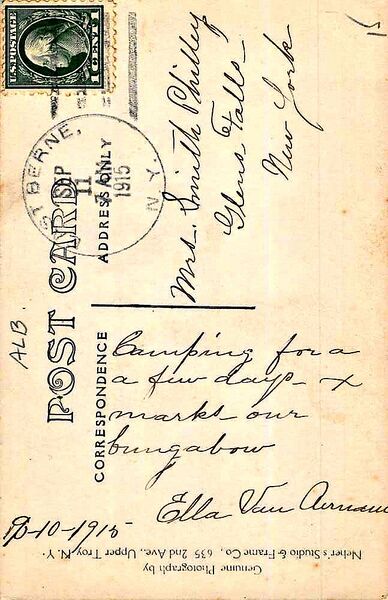 U.S. POSTAGE
1 CENT 1
ST BERNE,
SEP
11
7 AM
1915
N.Y.
15
ALB.
POST CARD
ADDRESS ONLY
CORRESPONDENCE
Mrs. Smith Philley
Glens Falls
New York
Camping for a
a few days - x
marks our
bungabow
Ella Van Aernam
9-10-1915
Genuine Photograph by
Neher's Studio & Frame Co., 635 2nd Ave., Upper Troy, N. Y.